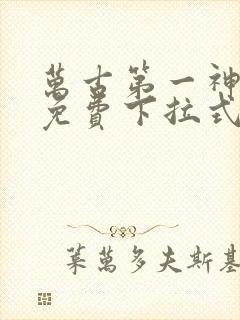 萬古第一神
免費下拉式
葉萬多夫斯基